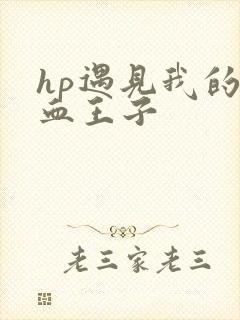 hp遇见我的
血王子
老三家老三